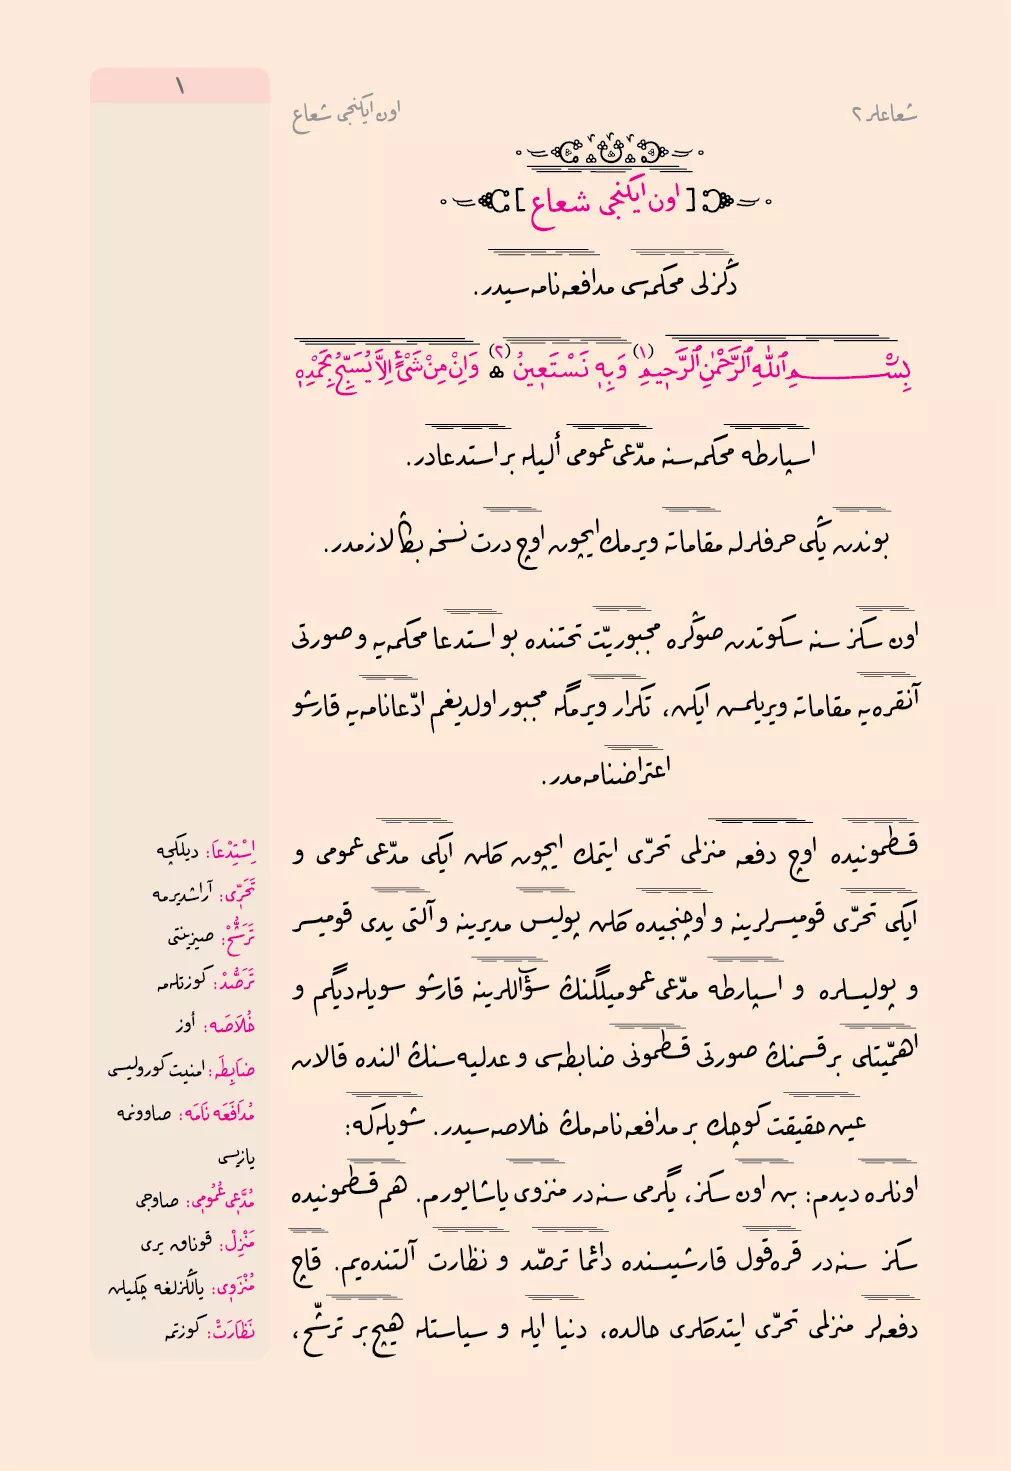 ١
شعاعلر ٢
اون ايكنجی شعاع
[ اون ايكنجی شعاع ]
دڭزلی محكمه‌سی مدافعه‌نامه‌سيدر.
بِسْمِ اللّٰهِ الرَّحْمٰنِ الرَّحٖيمِ (١) وَبِهٖ نَسْتَعٖينُ (٢) ❊ وَاِنْ مِنْ شَیْءٍ اِلَّا يُسَبِّحُ بِحَمْدِهٖ
اسپارطه محكمه‌سنه مدّعی عمومی أليله بر استدعادر.
بوندن يڭی حرفلرله مقاماته ويرمك ايچون اوچ درت نسخه بڭا لازمدر.
اون سكز سنه سكوتدن صوڭره مجبوريّت تحتنده بو استدعا محكمه‌يه و صورتی
آنقره‌يه مقاماته ويريلمسن ايكن، تكرار ويرمگه مجبور اولديغم ادّعانامه‌يه قارشو
اعتراضنامه‌مدر.
قسطمونيده اوچ دفعه منزلمی تحرّی ايتمك ايچون كلن ايكی مدّعی عمومی و
ايكی تحرّی قوميسرلرينه و اوچنجيده كلن پوليس مديرينه و آلتی يدی قوميسر
و پوليسلره و اسپارطه مدّعی عموميلگنڭ سؤاللرينه قارشو سويله‌ديگم و
اهمّيتلی بر قسمنڭ صورتی قسطمونی ضابطه‌سی و عدليه‌سنڭ النده قالان
عين حقيقت كوچك بر مدافعه‌نامه‌مڭ خلاصه‌سيدر. شويله‌كه:
اونلره ديدم: بن اون سكز، يگرمی سنه‌در منزوی ياشايورم. هم قسطمونيده
سكز سنه‌در قره‌قول قارشيسنده دائما ترصّد و نظارت آلتنده‌يم. قاچ
دفعه‌لر منزلمی تحرّی ايتدكلری حالده، دنيا ايله و سياستله هيچ بر ترشّح،
اِسْتِدْعَا: ديلكچه
تَحَرّٖی: آراشديرمه
تَرَشُّحْ: صيزينتی
تَرَصُّدْ: كوزتله‌مه
خُلَاصَه: أوز
ضَابِطَه: امنيت كوروليسی
مُدَافَعَه نَامَه: صاوونمه
يازيسی
مُدَّعٖی عُمُومٖی: صاوجی
مَنْزِلْ: قوناق يری
مُنْزَوٖی: يالڭزلغه چكيلن
نَظَارَتْ: كوزتمه